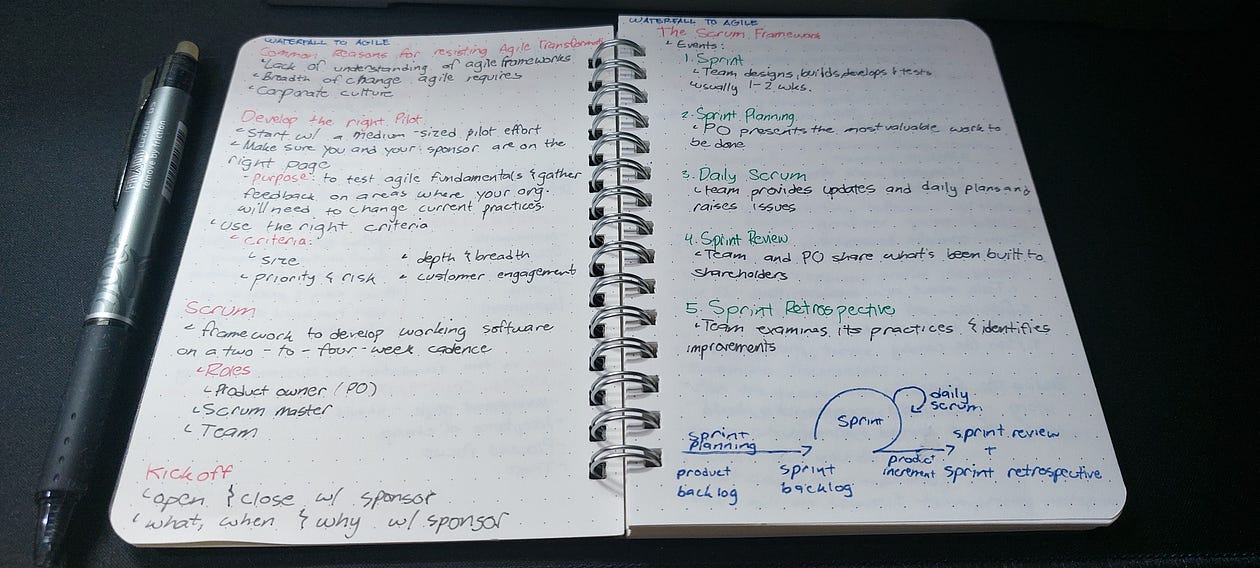 WATERFALL TO AGILE
Common Reasons for resisting Agile Transformati
Lack of understanding of agile frameworks
Breadth of change agile requires
Corporate culture
Develop the right Pilot
Start w/ a medium-sized pilot effort
Make sure you and your sponsor are on the
right page
- purpose: to test agile fundamentals & gather
feedback on areas where your org.
will need to change current practices.
Use the right criteria
criteria:
size
depth & breadth
priority & risk
customer engagement
Scrum
framework to develop working software
on a two-to-four-week cadence
Roles
Product owner (PO)
Scrum master
Team
Kick off
open & close w/ sponsor
what, when & why w/ sponsor
WATERFALL TO AGILE
The Scrum Framework
Events:
1. Sprint
Team designs, builds, develops & tests
usually 1-2 wks.
2. Sprint Planning
PO presents the most valuable work to
be done
3. Daily Scrum
team provides updates and daily plans and
raises issues
4. Sprint Review
Team and PO share what's been built to
shareholders
5. Sprint Retrospective
Team examins its practices & identifies
improvements
sprint
planning
product
backlog
sprint
backlog
Sprint
daily
scrum
product
increment
sprint review
+
sprint retrospective
remove by friction